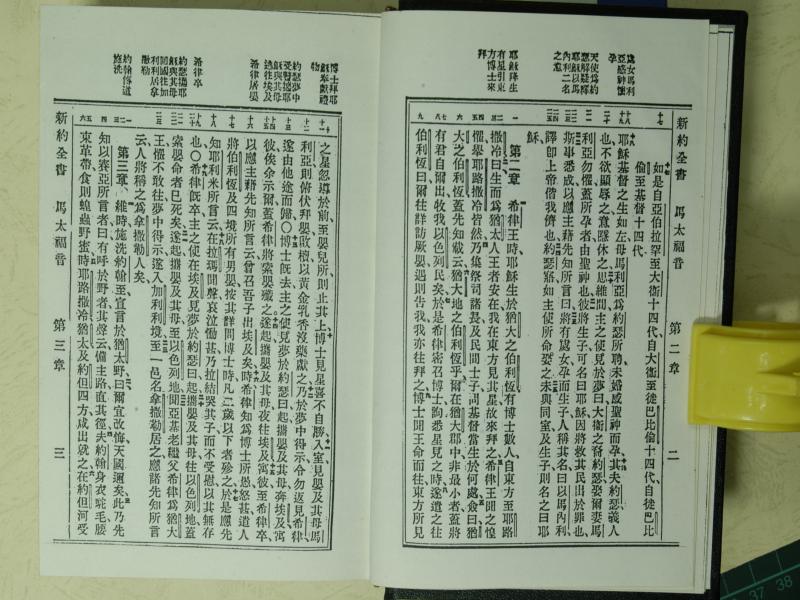 新約全書 馬太福音 第二章 二
處女馬利
亞感神懷
孕
天使爲約
瑟解疑釋
耶穌以馬
內利二名
之意
耶穌降生
有星引東
方博士來
拜
如是自亞伯拉罕至大衛十四代自大衛至徙巴比倫十四代自徙巴比
倫至基督十四代
耶穌基督之生如左母馬利亞爲約瑟所聘未婚感聖神而孕其夫約瑟義人
也不欲顯辱之意隱休之思維間主之使見於夢曰大衛之裔約瑟娶爾妻馬
利亞勿懼蓋所孕者由聖神也彼將生子可名曰耶穌因將救其民出於罪也
斯事悉成以應主藉先知所言曰將有處女孕而生子人稱其名曰以馬內利
譯即上帝偕我儕也約瑟寤如主使所命娶之未與同室及生子則名之曰耶
穌
第二章 希律王時耶穌生於猶大之伯利恆有博士數人自東方至耶路
撒冷曰生而爲猶太人王者安在我在東方見其星故來拜之希律王聞之惶
懼舉耶路撒冷皆然乃集祭司諸長及民間士子詞基督當生於何處僉曰猶
大之伯利恆蓋先知載云猶大地之伯利恆乎爾在猶大郡中非最小者蓋將
有君自爾出牧我以色列民矣於是希律密召博士詢悉星見之時遂遣之往
伯利恆曰爾往詳訪厥嬰遇則告我我亦往拜之博士聞王命而往東方所見
博士拜耶
穌奉獻禮
物
約瑟夢中
受警攜耶
穌與其母
逃往埃及
希律屠嬰
希律卒
約瑟攜耶
穌與其母
同國往加
利利居拿
撒勒
約翰傳道
施洗
之星忽導於前至嬰兒所則止其上博士見星喜不自勝入室見嬰及其母馬
利亞則俯伏拜嬰啟櫝以黃金乳香沒藥獻之乃於夢中得示令勿返見希律
遂由他途而歸○博士既去主之使見夢於約瑟曰起攜嬰及其母奔埃及寓
彼俟余示爾蓋希律將索嬰殲之遂起攜嬰及其母夜往埃及寓彼至希律卒
以應主藉先知所言云曾召吾子出埃及矣時希律知爲博士所愚怒甚遣人
將伯利恆及四境所有男嬰按其詳問博士時凡二歲以下者殄之於是應先
知耶利米所言云在拉瑪聞聲哀泣慟甚乃拉結哭其子而不受慰以其無存
也○希律既卒主之使在埃及見夢於約瑟曰起攜嬰及其母往以色列地蓋
索嬰命者已死矣遂起攜嬰及其母至以色列地聞亞基老繼父希律爲猶大
王懼不敢往夢中得示遂入加利利境至一邑名拿撒勒居之應諸先知所言
云人將稱之爲拿撒勒人矣
第三章 維時施洗約翰至宣言於猶太野曰爾宜改悔天國邇矣此乃先
知以賽亞所言者曰有呼於野者其聲云備主路直其徑夫約翰身衣駝毛腰
束革帶食則蝗蟲野蜜時耶路撒冷猶太及約但四方咸出就之在約但河受
新約全書 馬太福音 第三章 三
37 38